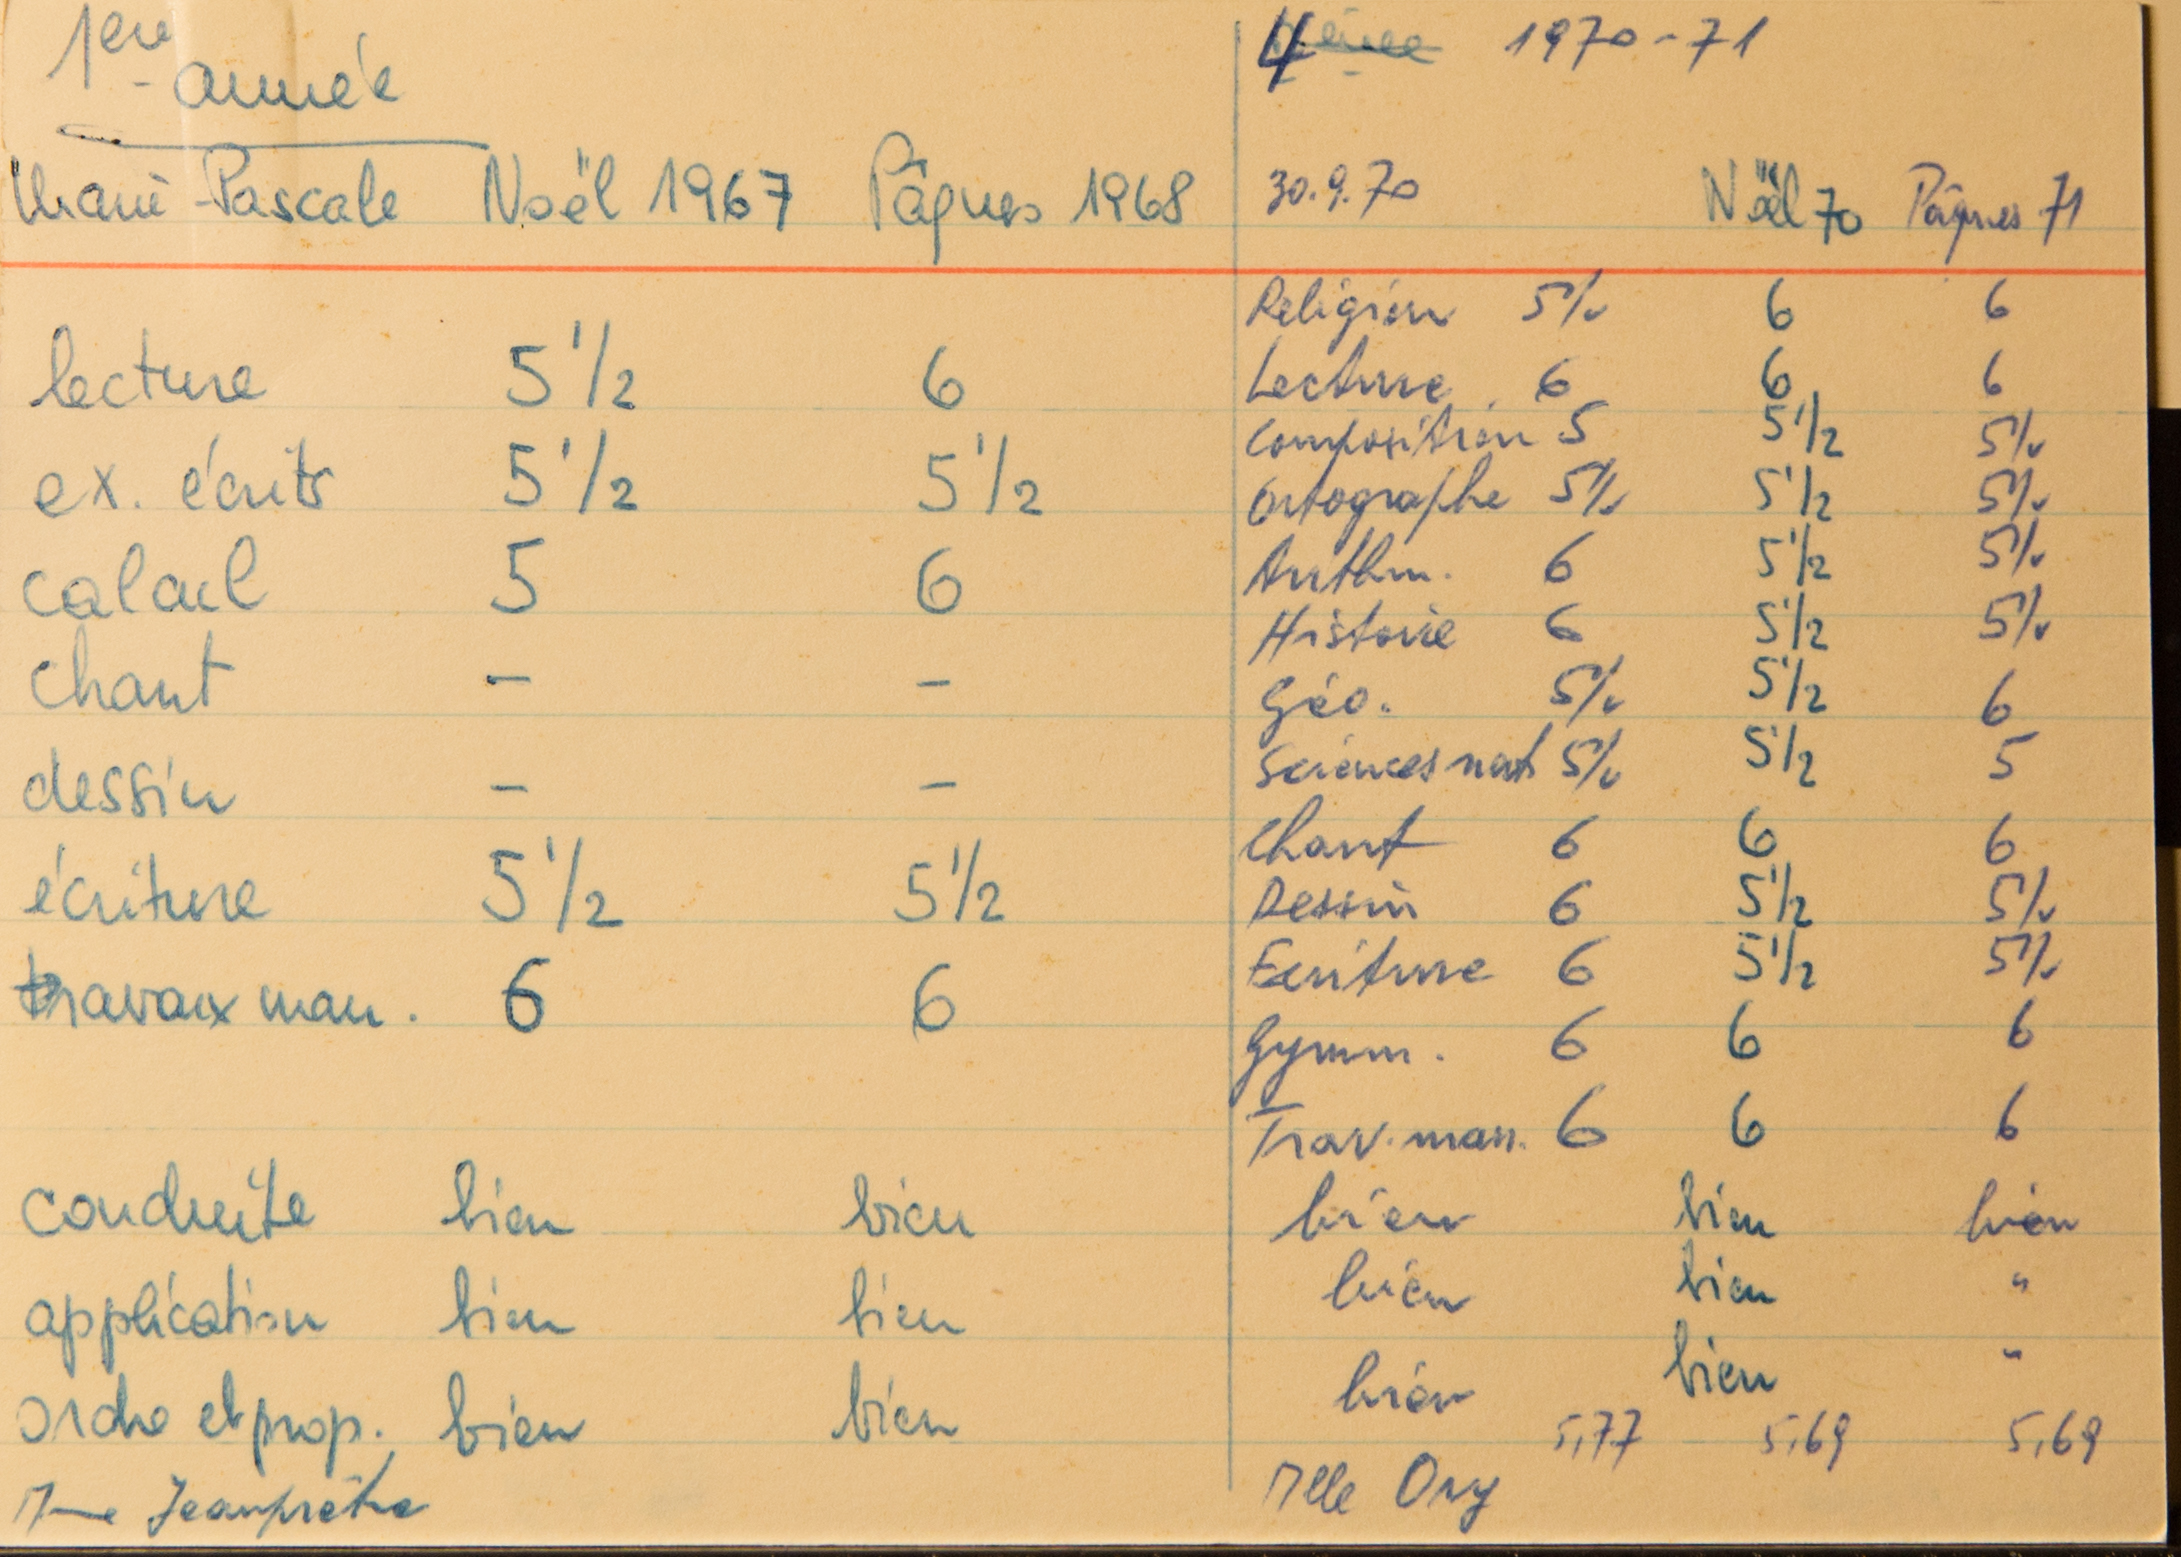 1ere
année
Marie-Pascale Noël 1967 Pâques 1968
lecture 5 1/2 6
ex. écrits 5 1/2 5 1/2
calcul 5 6
chant - -
dessin - -
écriture 5 1/2 5 1/2
travaux man. 6 6
conduite bien bien
application bien bien
ordre et prop. bien bien
Mme Jeanprêtre
4 1970-71
30.9.70 Noël 70 Pâques 71
Religion 5 1/2 6 6
Lecture 6 6 6
Composition 5 5 1/2 5 1/2
Ortographe 5 1/2 5 1/2 5 1/2
Arithm. 6 5 1/2 5 1/2
Histoire 6 5 1/2 5 1/2
Géo. 5 1/2 5 1/2 6
Sciences nat 5 1/2 5 1/2 5
Chant 6 6 6
Dessin 6 5 1/2 5 1/2
Ecriture 6 5 1/2 5 1/2
Gymn. 6 6 6
Trav. man. 6 6 6
bien bien bien
bien bien "
bien bien "
5,77 5,69 5,69
Mlle Ory